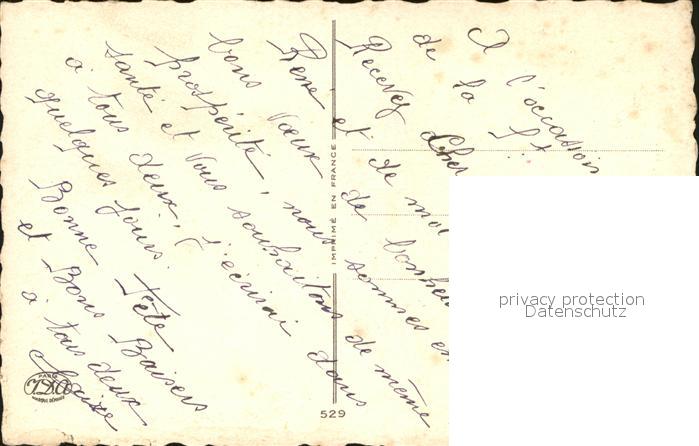 A l'occasion
de la St
Recevez Cher
René et de moi
bons vœux de bonheur
prospérité, nous sommes en
santé et vous souhaitons de même
à tous deux, j'écrirai dans
quelques jours.
Bonne Fête
et Bons Baisers
à tous deux
IMPRIMÉ EN FRANCE
529
PARIS
privacy protection
Datenschutz